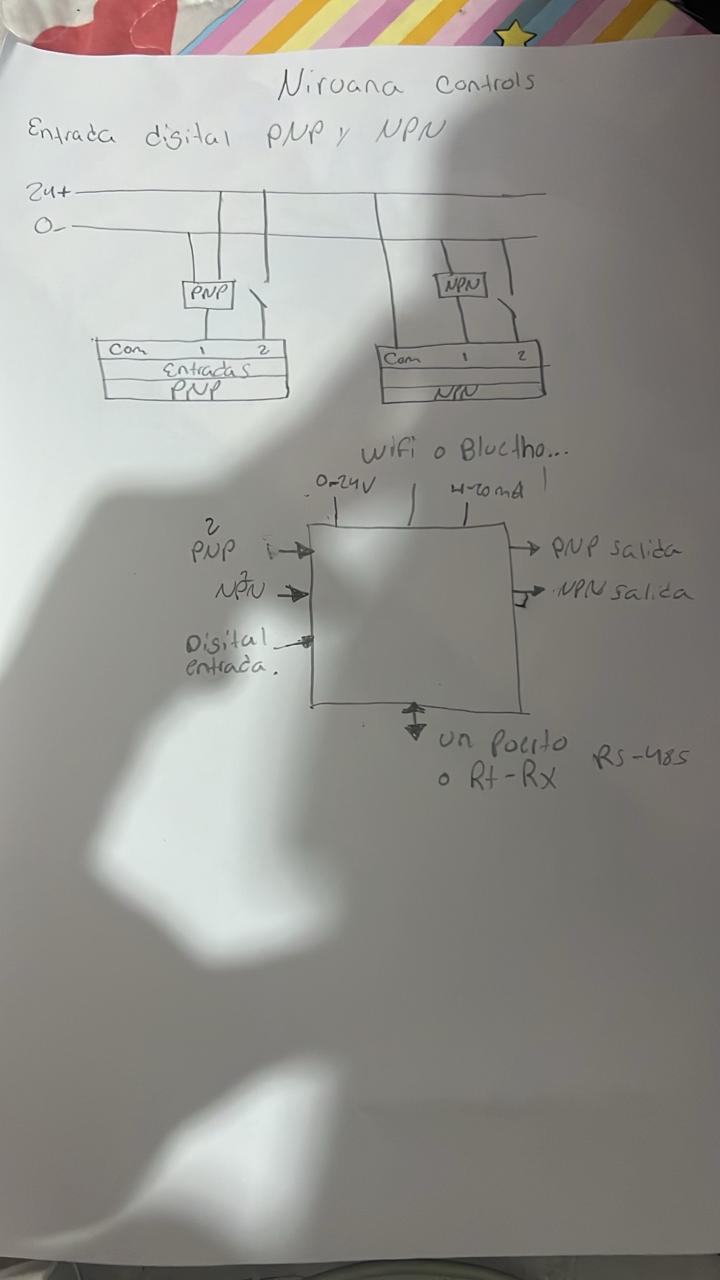 Nirvana Controls
Entrada digital PNP y NPN
24+
0-
PNP
NPN
Com 1 2
Entradas
PNP
Com 1 2
NPN
Wifi o Bluctho...
0-24V
4-20mA
2
PNP
2
NPN
Digital
entrada.
PNP salida
NPN salida
un Poerto
o Rt-Rx
RS-485